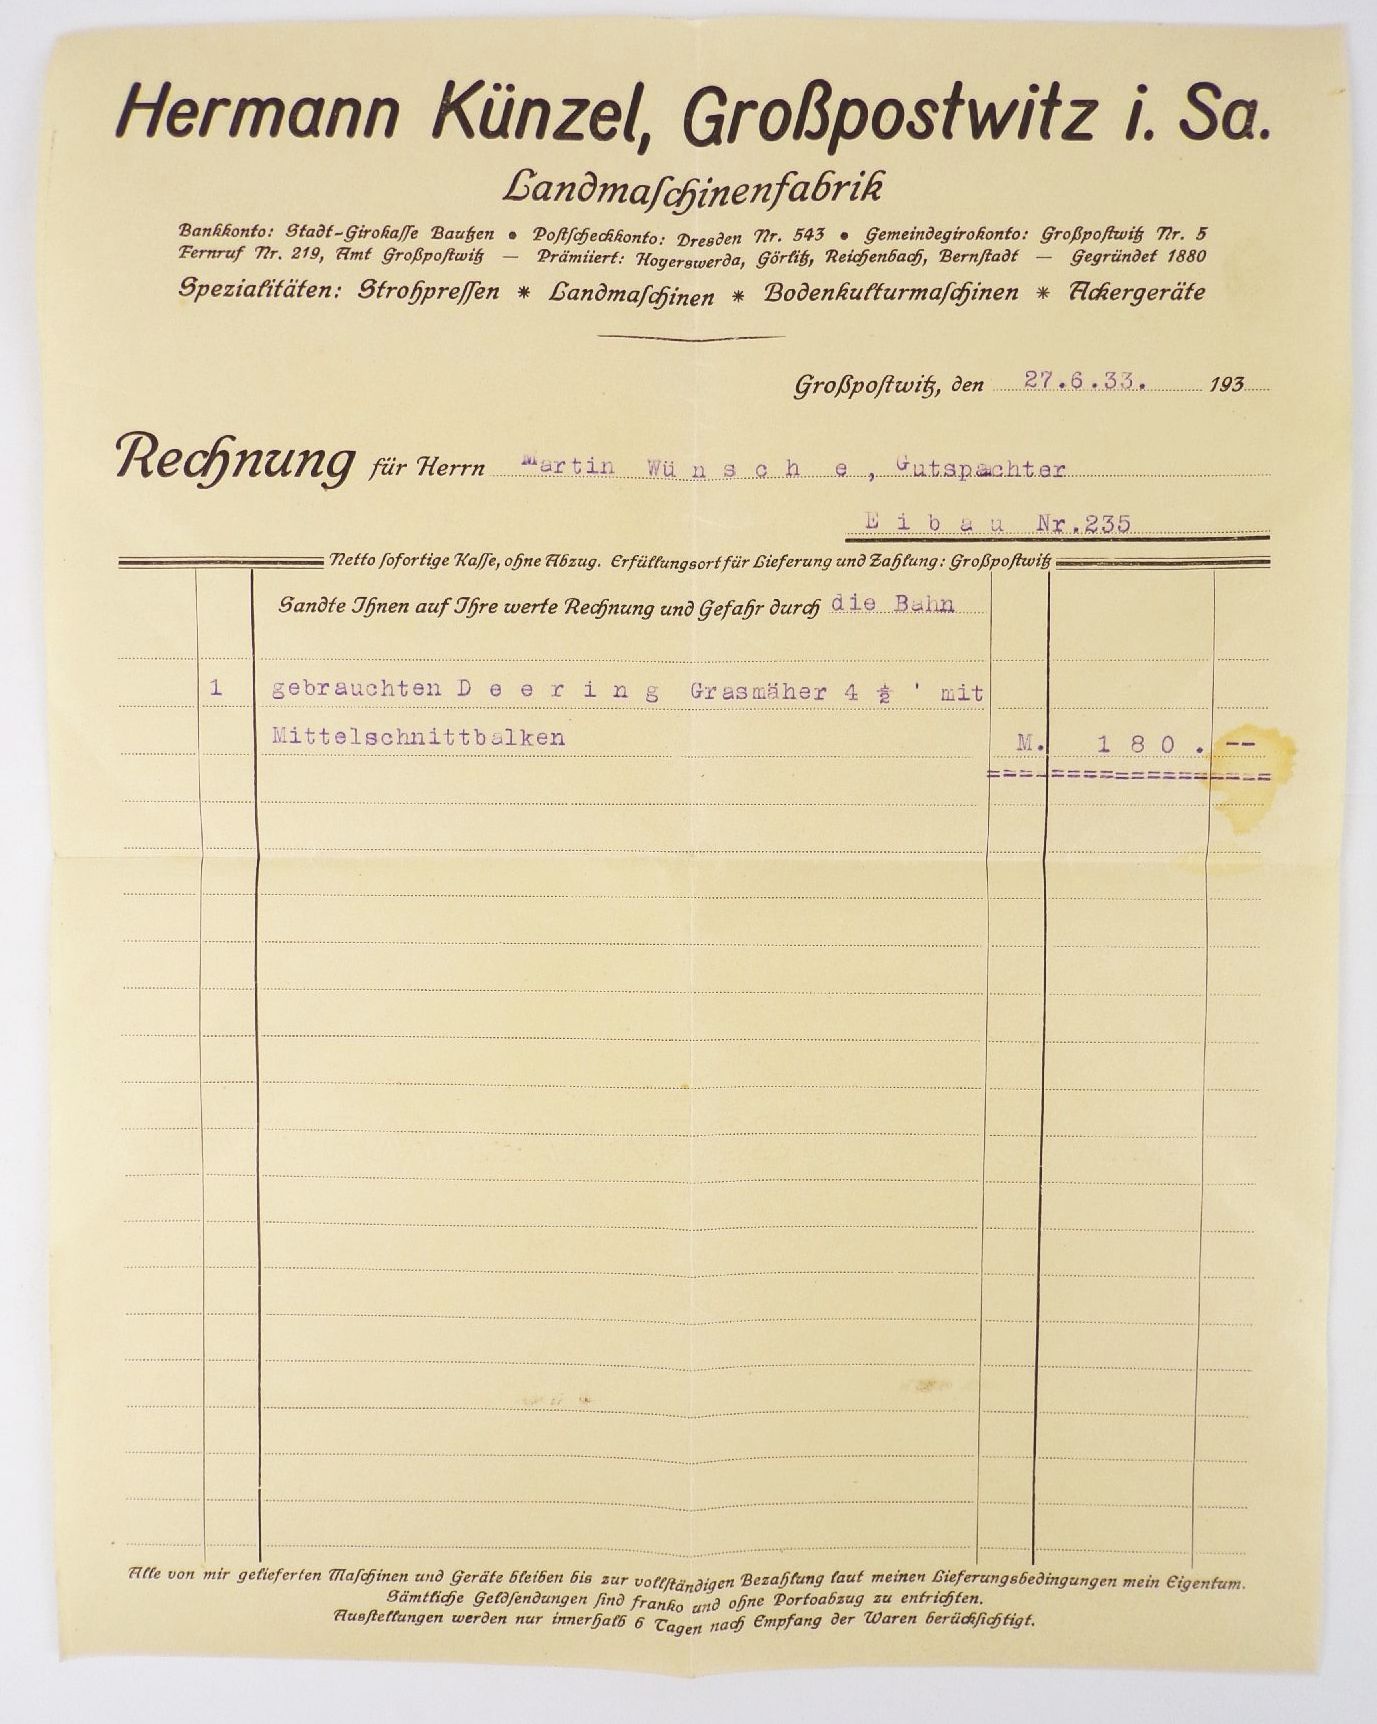 Hermann Künzel, Großpostwitz i. Sa.
Landmaſchinenfabrik
Bankkonto: Stadt-Girokaſſe Bautzen • Poſtſcheckkonto: Dresden Nr. 543 • Gemeindegirokonto: Großpoſtwitz Nr. 5
Fernruf Nr. 219, Amt Großpoſtwitz — Prämiiert: Hoyerswerda, Görlitz, Reichenbach, Bernſtadt — Gegründet 1880
Spezialitäten: Strohpreſſen * Landmaſchinen * Bodenkulturmaſchinen * Ackergeräte
Großpoſtwitz, den 27.6.33. 193
Rechnung für Herrn Martin W ü n s c h e , Gutspachter
E i b a u Nr.235
Netto ſofortige Kaſſe, ohne Abzug. Erfüllungsort für Lieferung und Zahlung: Großpoſtwitz
Sandte Ihnen auf Ihre werte Rechnung und Gefahr durch die Bahn
1 gebrauchten D e e r i n g Grasmäher 4 ½ ' mit
Mittelschnittbalken M. 1 8 0 . --
Alle von mir gelieferten Maſchinen und Geräte bleiben bis zur vollſtändigen Bezahlung laut meinen Lieferungsbedingungen mein Eigentum.
Sämtliche Geldſendungen ſind franko und ohne Portoabzug zu entrichten.
Ausſtellungen werden nur innerhalb 6 Tagen nach Empfang der Waren berückſichtigt.